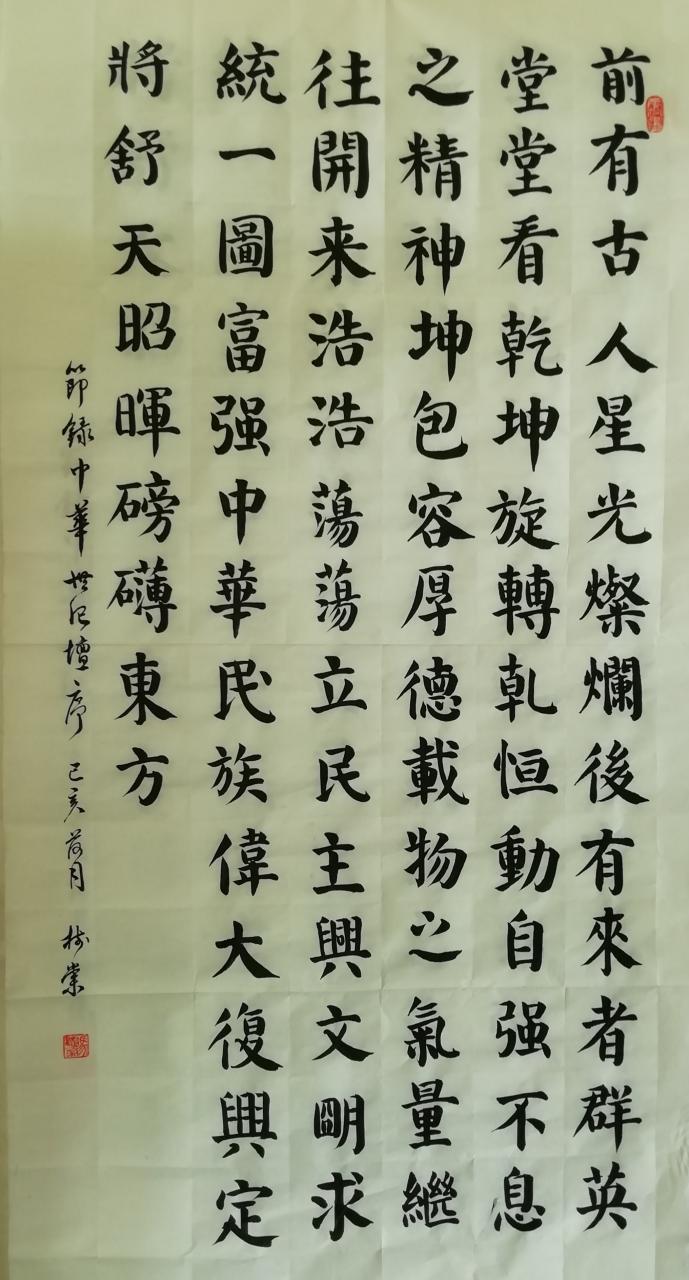 前有古人星光燦爛後有來者群英
堂堂看乾坤旋轉乹恒動自强不息
之精神坤包容厚德載物之氣量繼
往開来浩浩蕩蕩立民主興文明求
統一圖富强中華民族偉大復興定
將舒天昭暉磅礴東方
節錄中華世紀壇序 己亥荷月 樹棠